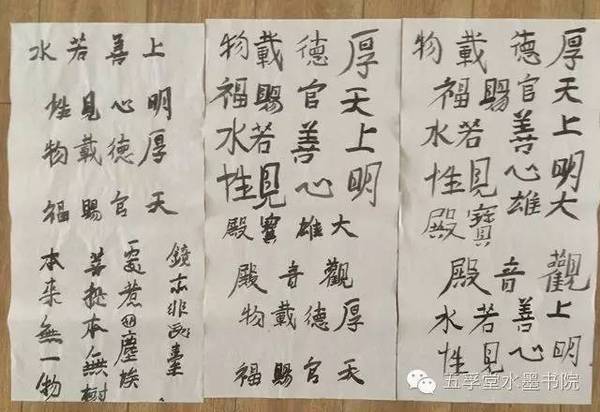 上善若水
明心見性
厚德載物
天官賜福
鏡亦非臺
處惹塵埃
菩提本無樹
本来無一物
厚德載物
天官賜福
上善若水
明心見性
大雄寶殿
觀音殿
厚德載物
天官賜福
厚德載物
天官賜福
上善若水
明心見性
大雄寶殿
觀音殿
上善若水
明心見性
五孚堂水墨书院